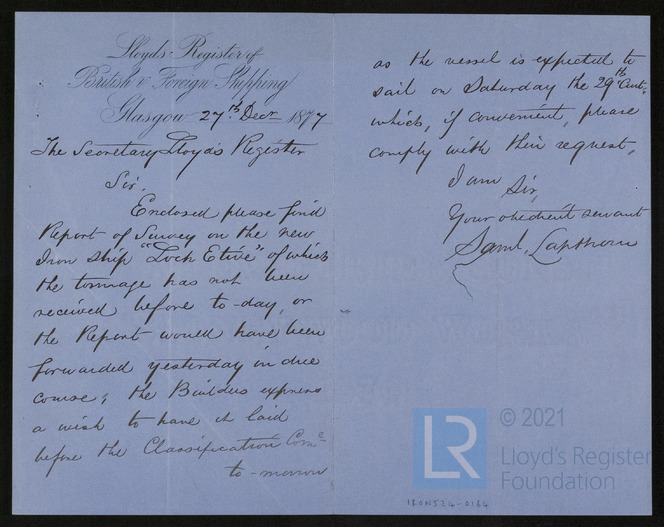 Lloyd's Register of
British & Foreign Shipping
Glasgow 27th Decr 1877
The Secretary Lloyd's Register
Sir,
Enclosed please find
Report of Survey on the new
Iron Ship "Loch Etive" of which
the tonnage has not been
received before to-day, or
the Report would have been
forwarded yesterday in due
course; the Builders express
a wish to have it laid
before the Classification Comee
to-morrow
as the vessel is expected to
sail on Saturday the 29th Inst.
which, if convenient, please
comply with their request.
I am Sir,
Your obedient servant
Saml. Lapthorn
LR
© 2021
Lloyd's Register
Foundation
IRON524-0184